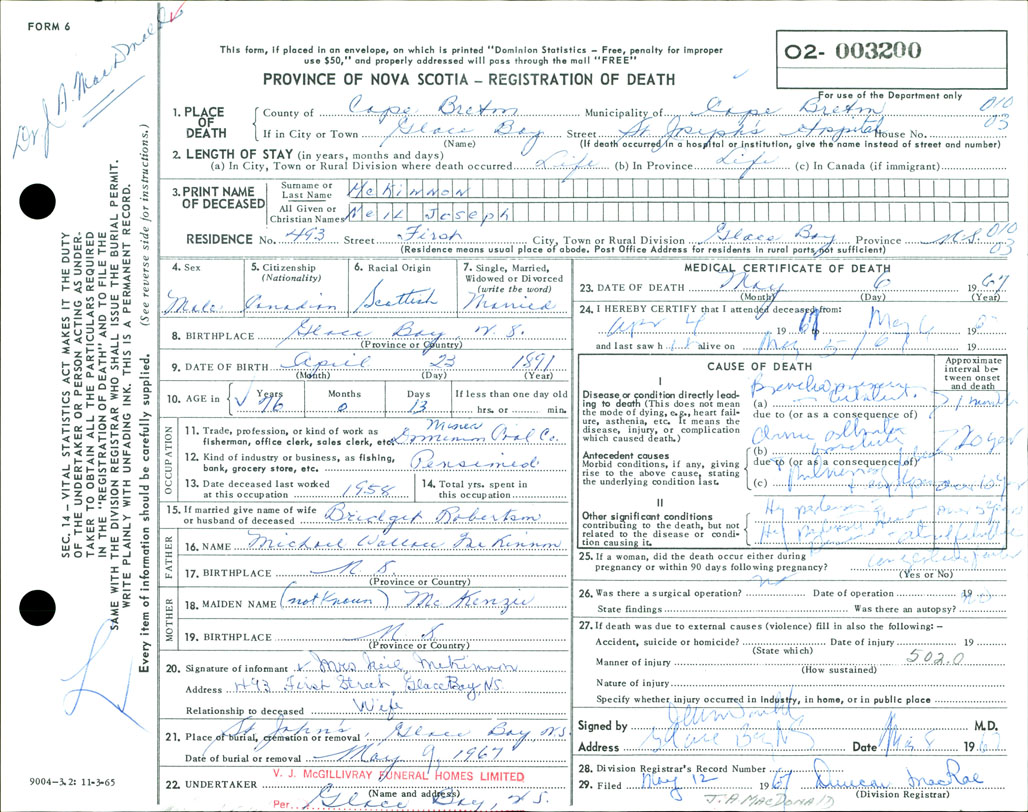 FORM 6
Dr J A. MacDonald
This form, if placed in an envelope, on which is printed "Dominion Statistics – Free, penalty for improper
use $50," and properly addressed will pass through the mail "FREE"
PROVINCE OF NOVA SCOTIA – REGISTRATION OF DEATH
02- 003200
For use of the Department only
1. PLACE OF DEATH
County of Cape Breton Municipality of Cape Breton 010
If in City or Town Glace Bay Street St Joseph's Hospital House No. 03
(Name) (If death occurred in a hospital or institution, give the name instead of street and number)
2. LENGTH OF STAY (in years, months and days)
(a) In City, Town or Rural Division where death occurred Life (b) In Province Life (c) In Canada (if immigrant)
3. PRINT NAME OF DECEASED
Surname or Last Name McKinnon
All Given or Christian Names Neil Joseph
RESIDENCE No. 493 Street First City, Town or Rural Division Glace Bay Province N.S. 010
(Residence means usual place of abode. Post Office Address for residents in rural parts not sufficient) 03
4. Sex
Male
5. Citizenship
(Nationality)
Canadian
6. Racial Origin
Scottish
7. Single, Married,
Widowed or Divorced
(write the word)
Married
8. BIRTHPLACE Glace Bay N.S.
(Province or Country)
9. DATE OF BIRTH April 23 1891
(Month) (Day) (Year)
10. AGE in Years Months Days If less than one day old
76 0 13 hrs. or min.
OCCUPATION
11. Trade, profession, or kind of work as
fisherman, office clerk, sales clerk, etc. Miner
Dominion Coal Co.
12. Kind of industry or business, as fishing,
bank, grocery store, etc. Pensioned
13. Date deceased last worked
at this occupation 1958
14. Total yrs. spent in
this occupation
15. If married give name of wife
or husband of deceased Bridget Robertson
FATHER
16. NAME Michael Wallace McKinnon
17. BIRTHPLACE N.S.
(Province or Country)
MOTHER
18. MAIDEN NAME (not known) McKenzie
19. BIRTHPLACE N S
(Province or Country)
20. Signature of informant Mrs Neil McKinnon
Address 493 First Street, Glace Bay, NS
Relationship to deceased Wife
21. Place of burial, cremation or removal St John's, Glace Bay N.S.
Date of burial or removal May 9, 1967
22. UNDERTAKER V. J. McGILLIVRAY FUNERAL HOMES LIMITED
(Name and address)
Per Glace Bay, N.S.
MEDICAL CERTIFICATE OF DEATH
23. DATE OF DEATH May 6 1967
(Month) (Day) (Year)
24. I HEREBY CERTIFY that I attended deceased from:
Apr 4 1967 May 6 19
and last saw h alive on May 5/67
CAUSE OF DEATH
Approximate interval between onset and death
I
Disease or condition directly leading to death (This does not mean the mode of dying, e.g., heart failure, asthenia, etc. It means the disease, injury, or complication which caused death.)
(a)
due to (or as a consequence of)
Antecedent causes
Morbid conditions, if any, giving rise to the above cause, stating the underlying condition last.
(b)
due to (or as a consequence of)
(c)
II
Other significant conditions
contributing to the death, but not related to the disease or condition causing it.
25. If a woman, did the death occur either during
pregnancy or within 90 days following pregnancy?
(Yes or No)
26. Was there a surgical operation? no Date of operation 19
State findings Was there an autopsy?
27. If death was due to external causes (violence) fill in also the following: –
Accident, suicide or homicide? Date of injury 19
(State which)
Manner of injury 502.0
(How sustained)
Nature of injury
Specify whether injury occurred in industry, in home, or in public place
Signed by M.D.
Address Glace Bay NS Date May 8 1967
28. Division Registrar's Record Number
29. Filed May 12 1967 Duncan MacRae
(Division Registrar)
J. A MACDONALD
SEC. 14 – VITAL STATISTICS ACT MAKES IT THE DUTY
OF THE UNDERTAKER OR PERSON ACTING AS UNDER-
TAKER TO OBTAIN ALL THE PARTICULARS REQUIRED
IN THE "REGISTRATION OF DEATH" AND TO FILE THE
SAME WITH THE DIVISION REGISTRAR WHO SHALL ISSUE THE BURIAL PERMIT.
WRITE PLAINLY WITH UNFADING INK. THIS IS A PERMANENT RECORD.
Every item of information should be carefully supplied. (See reverse side for instructions.)
9004-3.2: 11-3-65